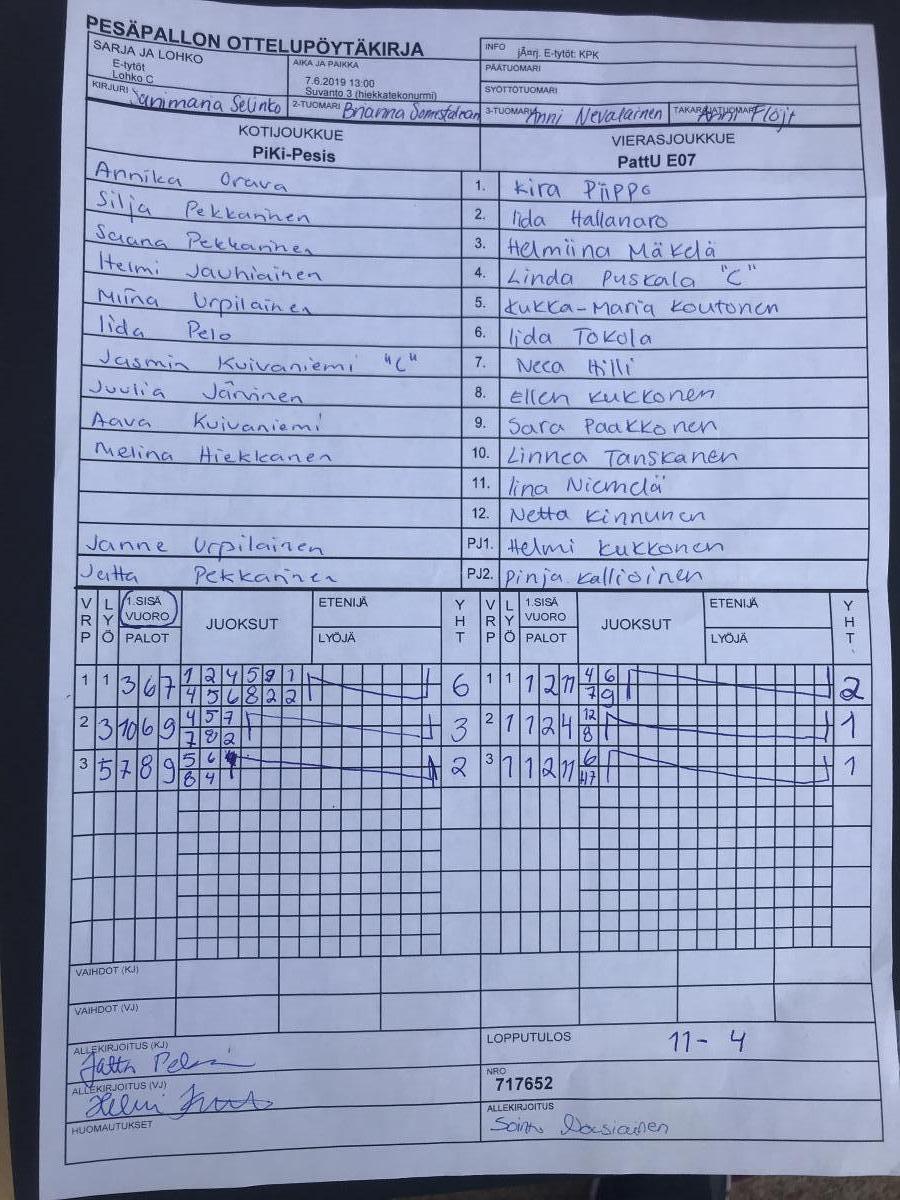 PESÄPALLON OTTELUPÖYTÄKIRJA
SARJA JA LOHKO
E-tytöt
Lohko C
AIKA JA PAIKKA
7.6.2019 13:00
Suvanto 3 (hiekkatekonurmi)
INFO jÄnrj. E-tytöt: KPK
PÄÄTUOMARI
SYÖTTÖTUOMARI
KIRJURI Janimaria Selinko
2-TUOMARI Brianna
3-TUOMARI Anni Nevalainen
TAKARAJATUOMARI Anni Flöjt
KOTIJOUKKUE
PiKi-Pesis
VIERASJOUKKUE
PattU E07
Annika Orava 1. Kira Piippo
Silja Pekkarinen 2. Iida Hallanaro
Saana Pekkarinen 3. Helmiina Mäkelä
Helmi Jauhiainen 4. Linda Puskala "C"
Miina Urpilainen 5. Kukka-Maria Koutonen
Iida Pelo 6. Iida Tokola
Jasmin Kuivaniemi "C" 7. Neea Hilli
Juulia Järvinen 8. Ellen Kukkonen
Aava Kuivaniemi 9. Sara Paakkonen
Melina Hiekkanen 10. Linnea Tanskanen
11. Iina Niemelä
12. Netta Kinnunen
Janne Urpilainen PJ1. Helmi Kukkonen
Jatta Pekkarinen PJ2. Pinja Kallioinen
VRP LYÖ 1.SISÄ VUORO PALOT JUOKSUT ETENIJÄ LYÖJÄ YHT VRP LYÖ 1.SISÄ VUORO PALOT JUOKSUT ETENIJÄ LYÖJÄ YHT
1 1 3 6 7 1 2 4 5 9 1 6 1 1 1 2 11 4 6 2
4 5 6 8 2 2 7 9
2 3 10 6 9 4 5 7 3 2 1 1 2 4 12 1
7 8 2 8
3 5 7 8 9 5 6 2 3 1 1 2 11 6 1
8 4
VAIHDOT (KJ)
VAIHDOT (VJ)
ALLEKIRJOITUS (KJ)
LOPPUTULOS 11 - 4
ALLEKIRJOITUS (VJ)
NRO
717652
HUOMAUTUKSET
ALLEKIRJOITUS